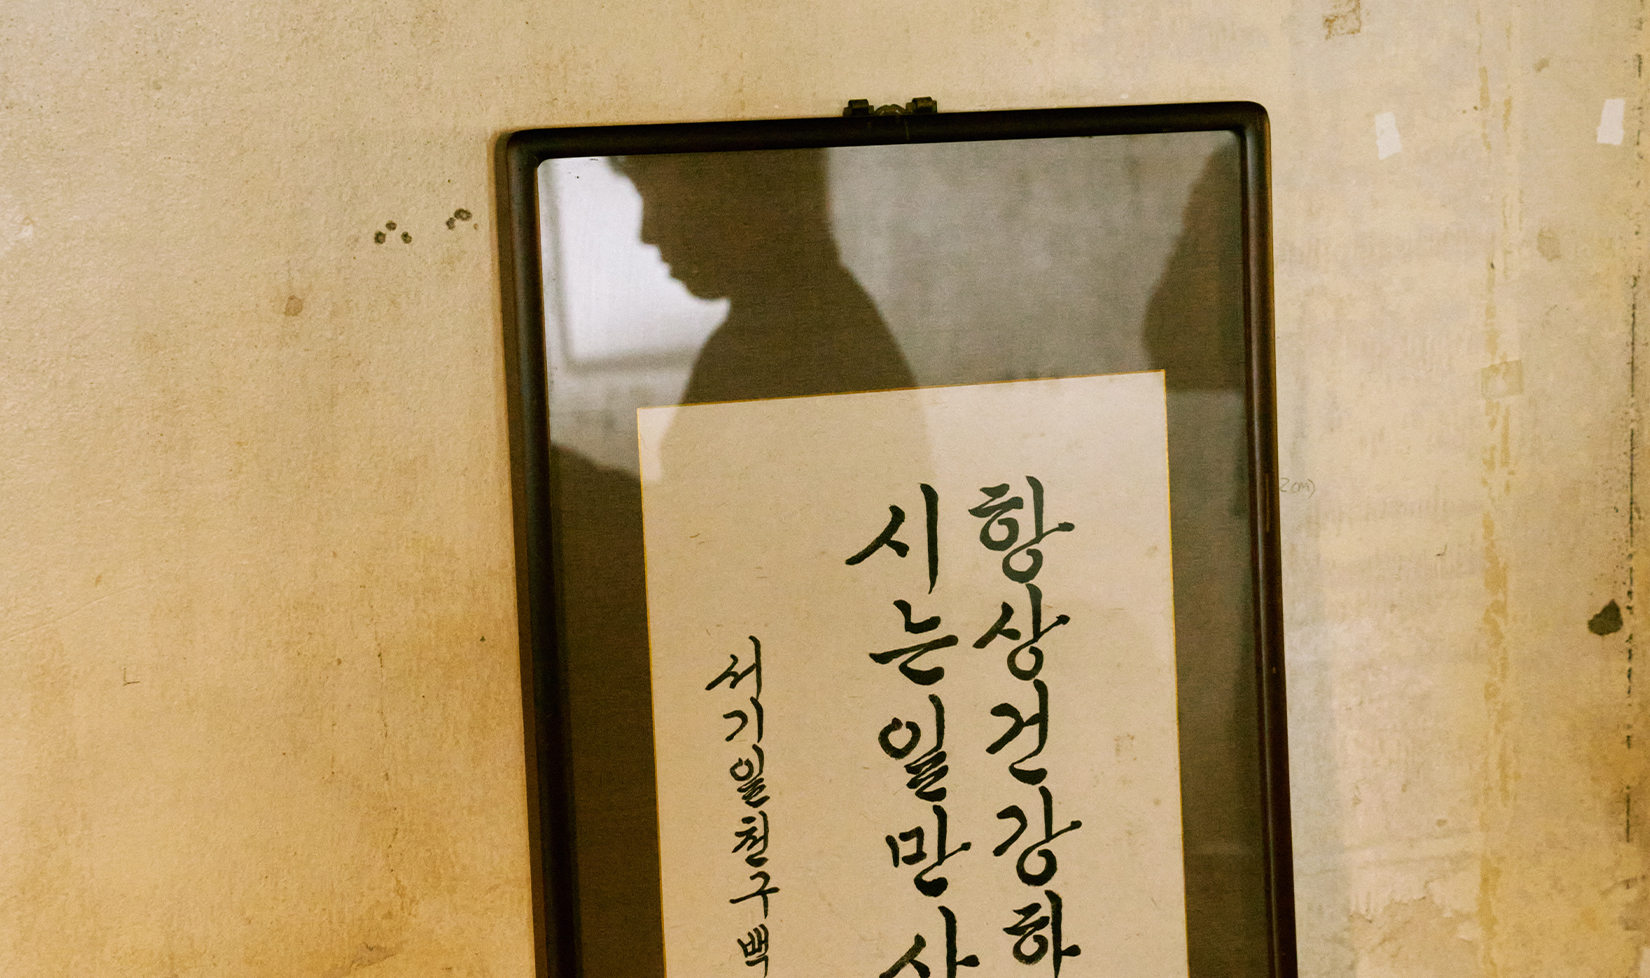 항상건강하
시는일만사
서기일천구백